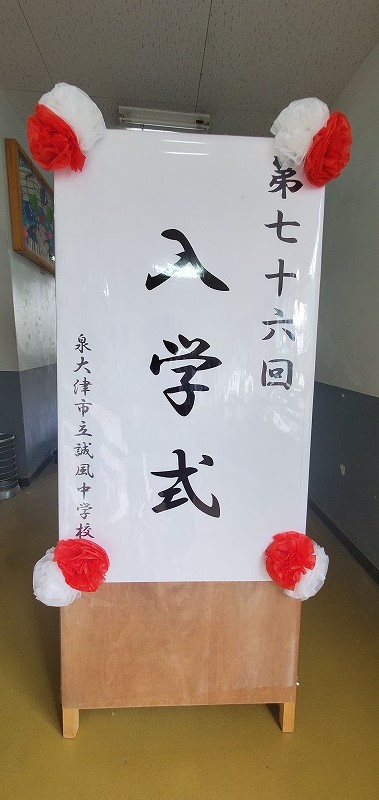 第七十六回
入学式
泉大津市立誠風中学校